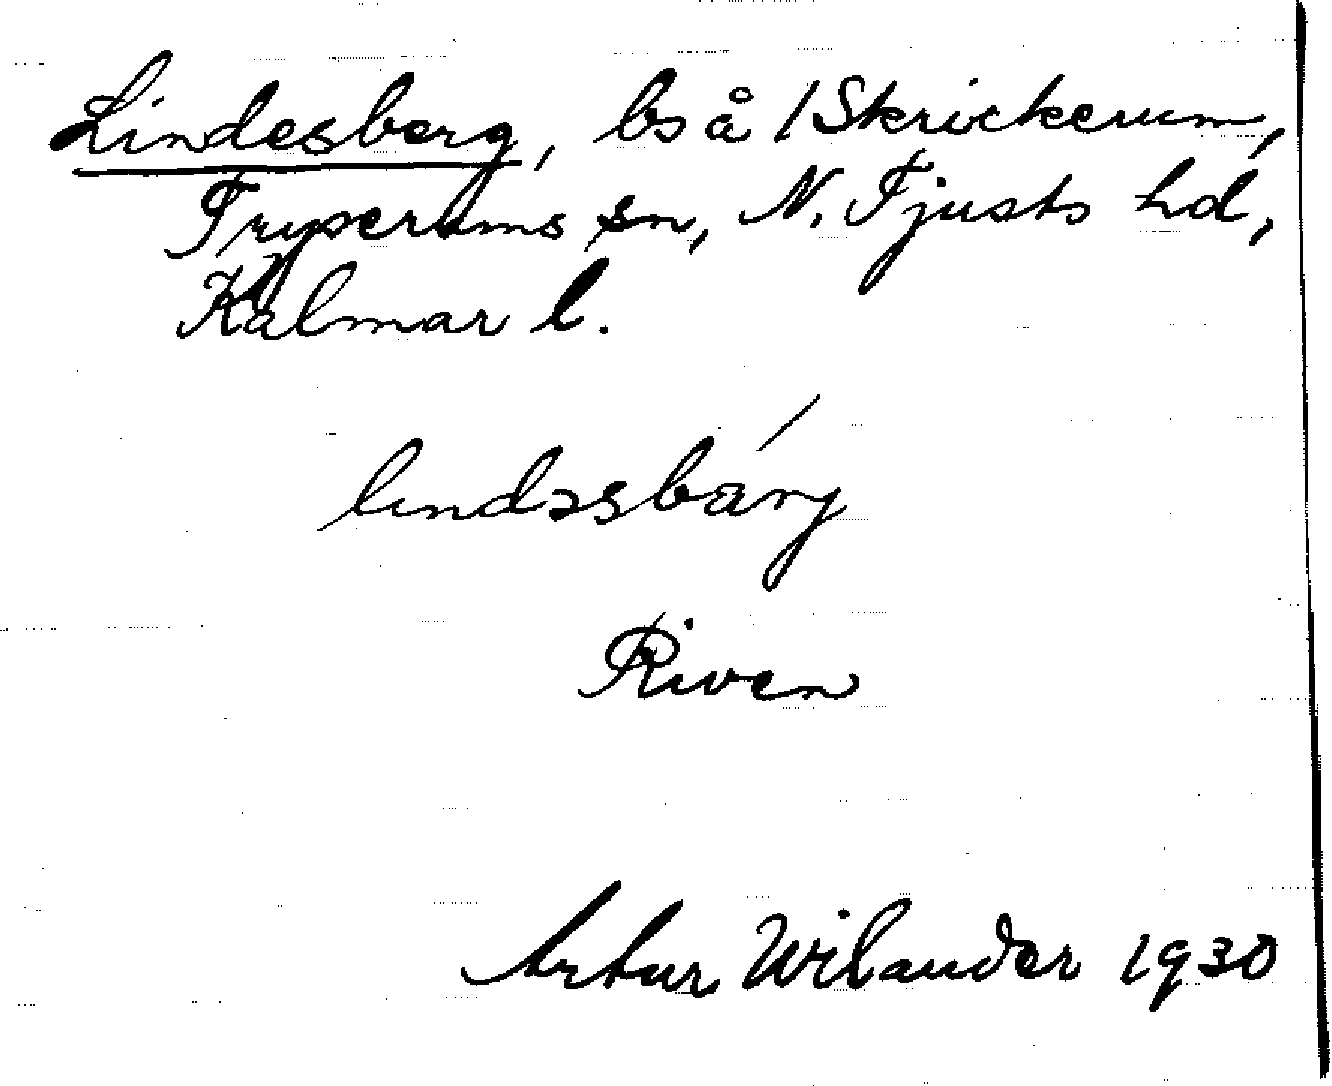 Lindesberg, bs å 1 Skrickerum,
Tryserums sn, N. Tjusts hd,
Kalmar l.
lindəsbärj
Riven
Artur Wilander 1930